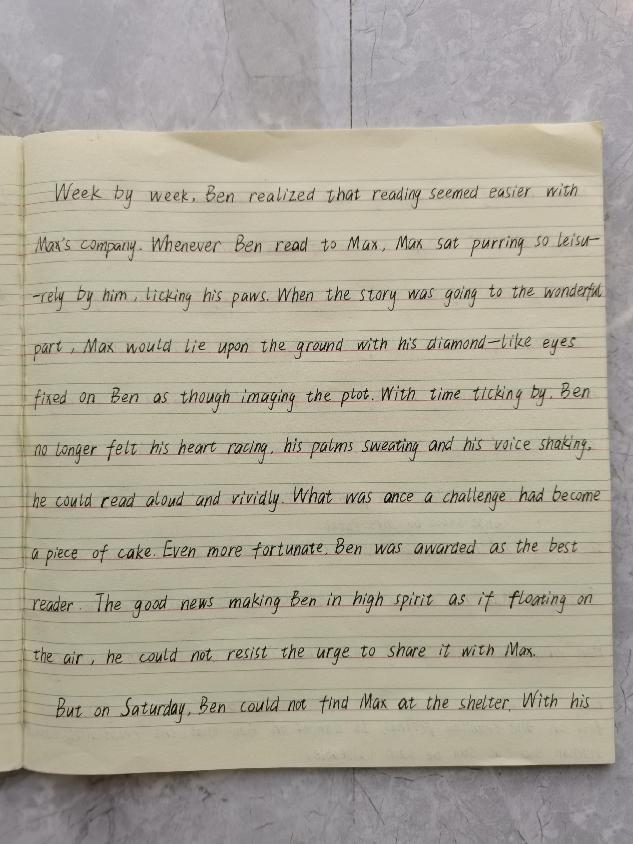 Week by week, Ben realized that reading seemed easier with
Max's company. Whenever Ben read to Max, Max sat purring so leisu-
-rely by him, licking his paws. When the story was going to the wonderful
part, Max would lie upon the ground with his diamond-like eyes
fixed on Ben as though imaging the plot. With time ticking by, Ben
no longer felt his heart racing, his palms sweating and his voice shaking,
he could read aloud and vividly. What was once a challenge had become
a piece of cake. Even more fortunate, Ben was awarded as the best
reader. The good news making Ben in high spirit as if floating on
the air, he could not resist the urge to share it with Max.
But on Saturday, Ben could not find Max at the shelter. With his